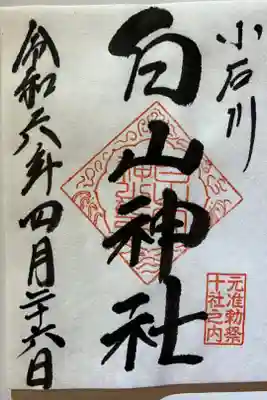 小石川
白山神社
元准勅祭
十社之内
令和六年四月二十六日